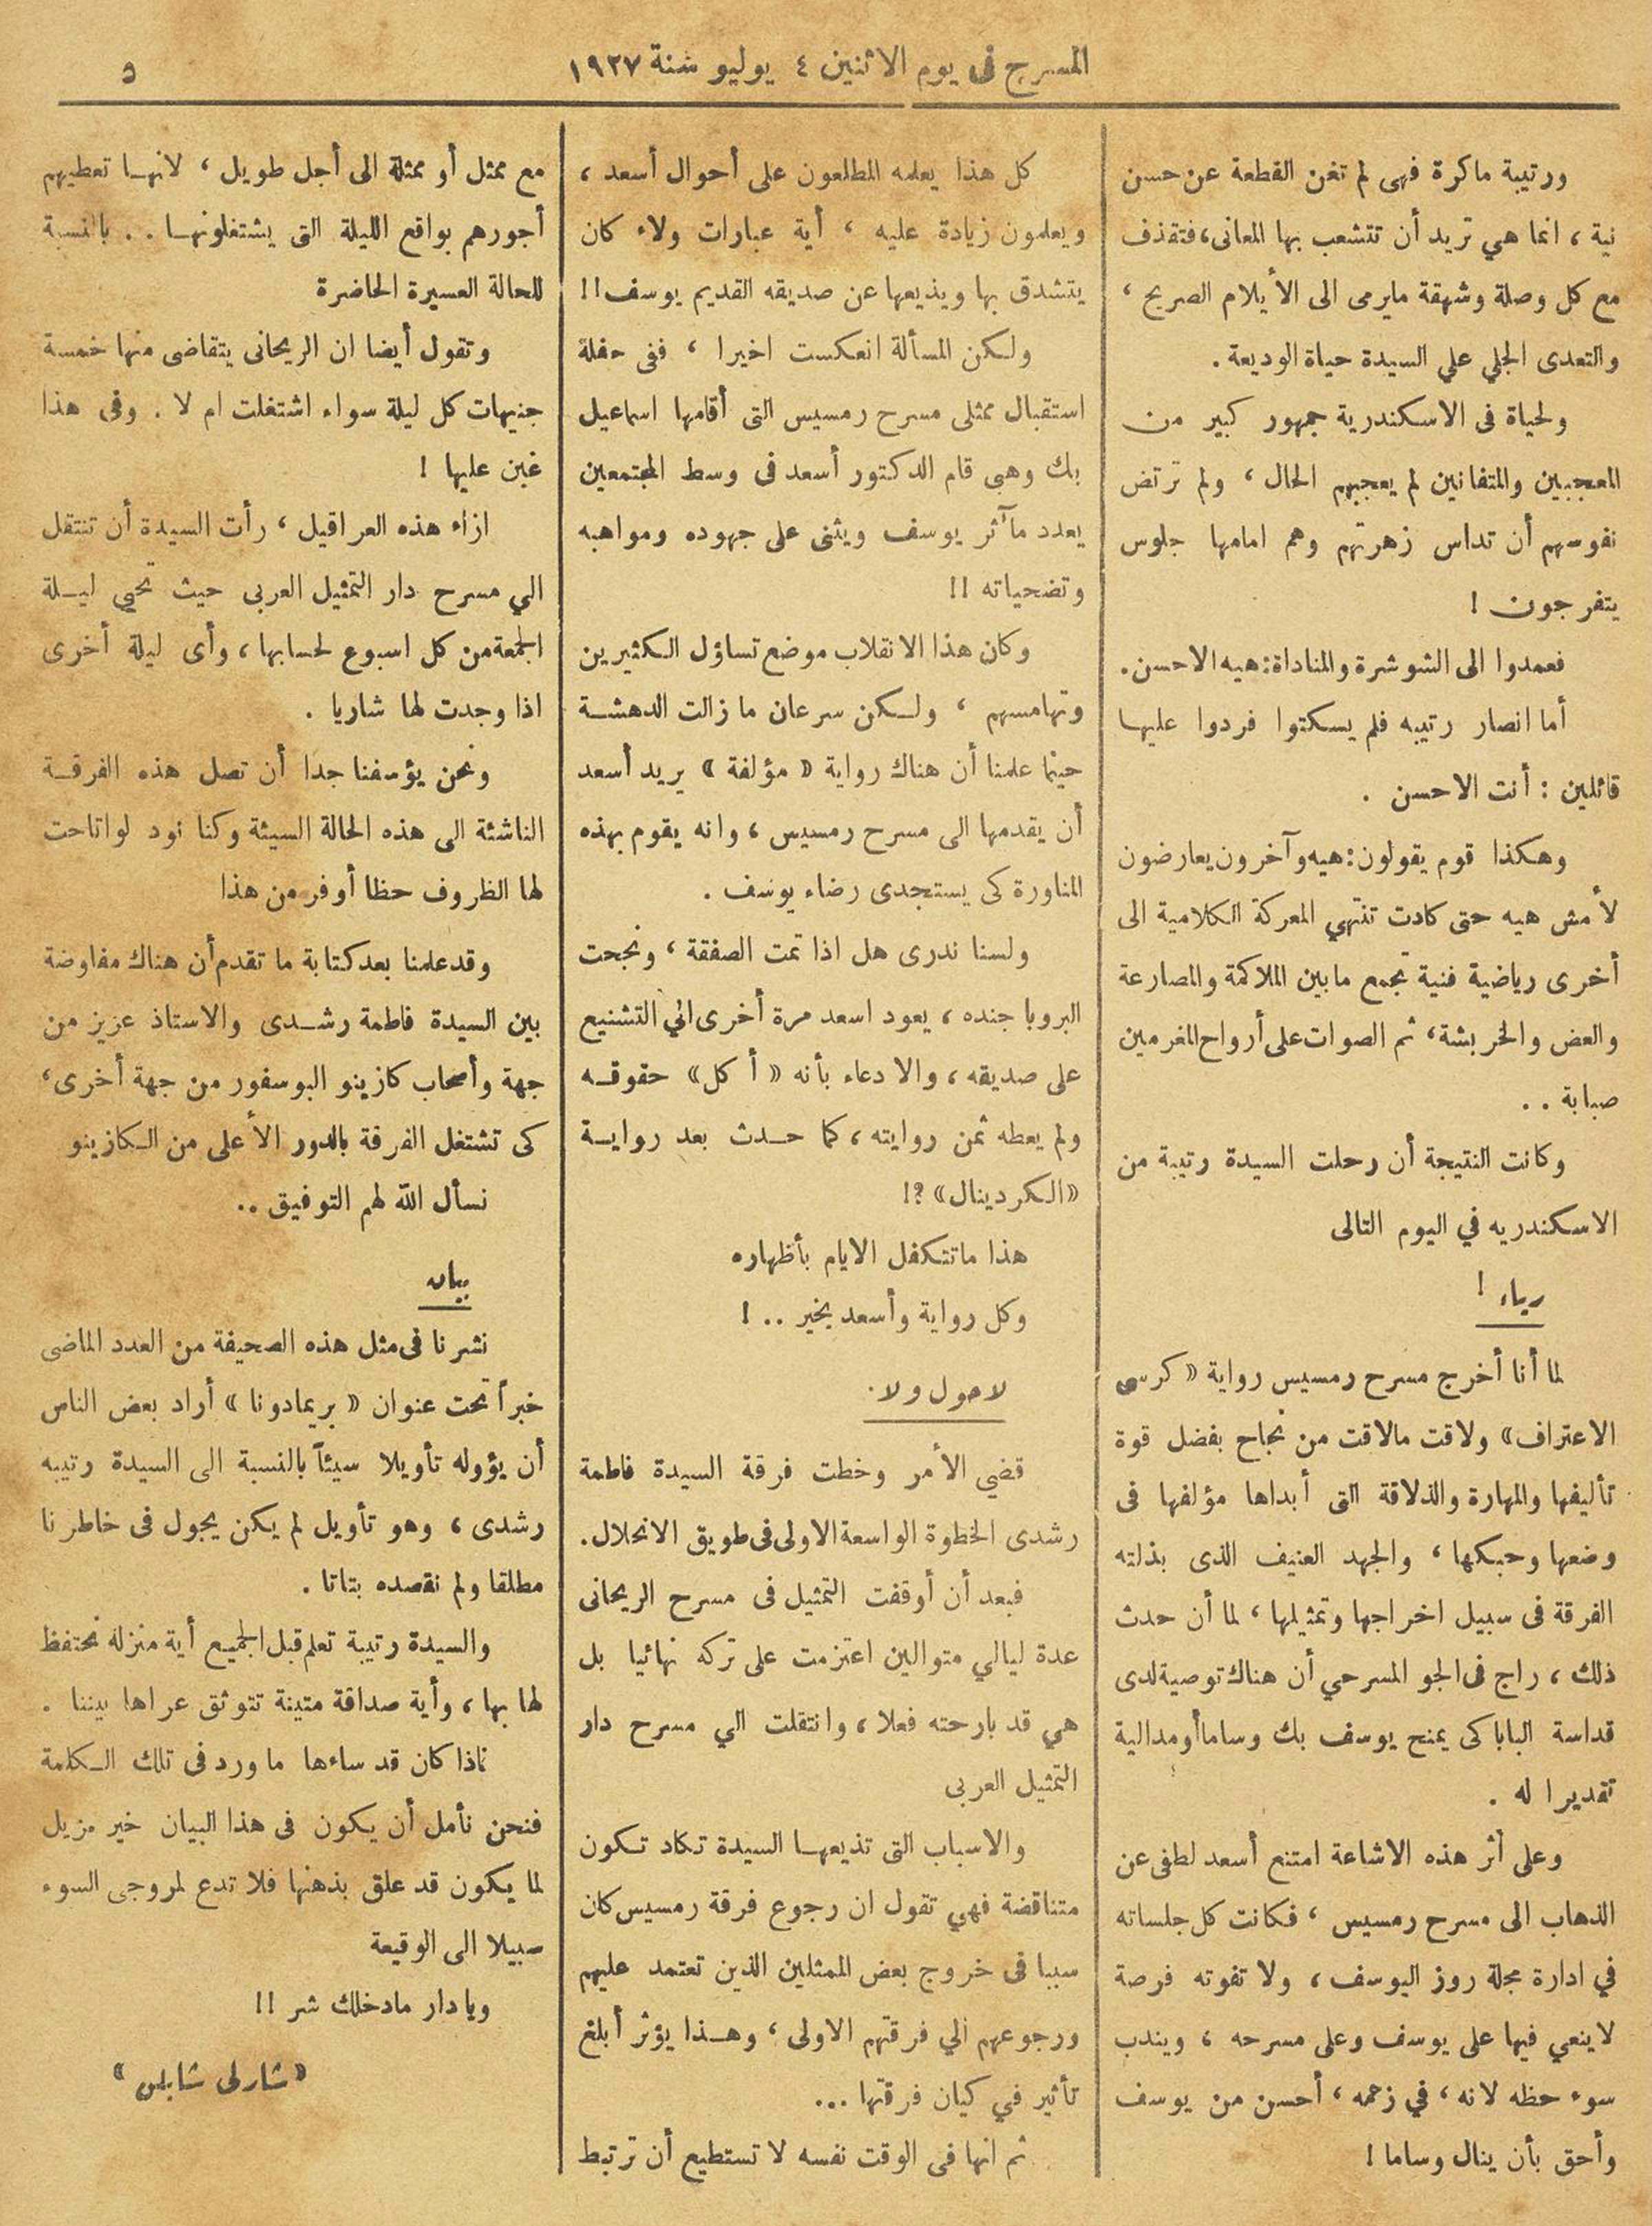 المسرح فى يوم الاثنين ٤ يوليو سنة ١٩٢٧
٥
ورتيبة ماكرة فهى لم تغن القطعة عن حسن
نية ، انما هي تريد أن تتشعب بها المعانى ، فتقذف
مع كل وصلة وشهقة مايرمى الى الأيلام الصريح ،
والتعدى الجلي علي السيدة حياة الوديعة .
ولحياة فى الاسكندرية جمهور كبير من
المعجبين والمتفانين لم يعجبهم الحال ، ولم ترتض
نفوسهم أن تداس زهرتهم وهم امامها جلوس
يتفرجون !
فعمدوا الى الشوشرة والمناداة : هيه الاحسن .
أما انصار رتيبه فلم يسكتوا فردوا عليها
قائلين : أنت الاحسن .
وهكذا قوم يقولون : هيه وآخرون يعارضون
لأ مش هيه حتى كادت تنتهي المعركة الكلامية الى
أخرى رياضية فنية تجمع مابين الملاكمة والمصارعة
والعض والخربشة ، ثم الصوات على أرواح المغرمين
صبابة . .
وكانت النتيجة أن رحلت السيدة رتيبة من
الاسكندريه في اليوم التالى
رياء !
لما أنا أخرج مسرح رمسيس رواية « كرسى
الاعتراف » ولاقت مالاقت من نجاح بفضل قوة
تأليفها والمهارة والذلاقة التى أبداها مؤلفها فى
وضعها وحبكها ، والجهد العنيف الذى بذلته
الفرقة فى سبيل اخراجها وتمثيلها ، لما أن حدث
ذلك ، راج فى الجو المسرحي أن هناك توصية لدى
قداسة البابا كى يمنح يوسف بك وساما أو مدالية
تقديرا له .
وعلى أثر هذه الاشاعة امتنع أسعد لطفى عن
الذهاب الى مسرح رمسيس ، فكانت كل جلساته
في ادارة مجلة روز اليوسف ، ولا تفوته فرصة
لا ينعي فيها على يوسف وعلى مسرحه ، ويندب
سوء حظه لانه ، في زعمه ، أحسن من يوسف
وأحق بأن ينال وساما !
كل هذا يعلمه المطلعون على أحوال أسعد ،
ويعلمون زيادة عليه ، أية عبارات ولاء كان
يتشدق بها ويذيعها عن صديقه القديم يوسف !!
ولكن المسألة انعكست اخيرا ، ففى حفلة
استقبال ممثلى مسرح رمسيس التى أقامها اسماعيل
بك وهبى قام الدكتور أسعد فى وسط المجتمعين
يعدد مآثر يوسف ويثنى على جهوده ومواهبه
وتضحياته !!
وكان هذا الانقلاب موضع تساؤل الكثيرين
وتهامسهم ، ولكن سرعان ما زالت الدهشة
حينما علمنا أن هناك رواية « مؤلفة » يريد أسعد
أن يقدمها الى مسرح رمسيس ، وانه يقوم بهذه
المناورة كى يستجدى رضاء يوسف .
ولسنا ندرى هل اذا تمت الصفقة ، ونجحت
البروبا جنده ، يعود اسعد مرة أخرى الي التشنيع
على صديقه ، والادعاء بأنه « أكل » حقوقه
ولم يعطه ثمن روايته ، كما حدث بعد رواية
« الكردينال » ؟!
هذا ماتتكفل الايام بأظهاره
وكل رواية وأسعد بخير . . !
لا حول ولا .
قضي الأمر وخطت فرقة السيدة فاطمة
رشدى الخطوة الواسعة الاولى فى طويق الانحلال .
فبعد أن أوقفت التمثيل فى مسرح الريحانى
عدة ليالي متوالين اعتزمت على تركه نهائيا بل
هي قد بارحته فعلا ، وانتقلت الي مسرح دار
التمثيل العربى
والاسباب التى تذيعها السيدة تكاد تكون
متناقضة فهي تقول ان رجوع فرقة رمسيس كان
سببا فى خروج بعض الممثلين الذين تعتمد عليهم
ورجوعهم الي فرقتهم الاولى ، وهذا يؤثر أبلغ
تأثير في كيان فرقتها ...
ثم انها فى الوقت نفسه لا تستطيع أن ترتبط
مع ممثل أو ممثلة الى أجل طويل ، لانها تعطيهم
أجورهم بواقع الليلة التى يشتغلونها . . بالنسبة
للحالة العسيرة الحاضرة
وتقول أيضا ان الريحانى يتقاضى منها خمسة
جنيهات كل ليلة سواء اشتغلت ام لا . وفى هذا
غبن عليها !
ازاء هذه العراقيل ، رأت السيدة أن تنتقل
الي مسرح دار التمثيل العربى حيث تحيي ليلة
الجمعة من كل اسبوع لحسابها ، وأى ليلة أخرى
اذا وجدت لها شاريا .
ونحن يؤسفنا جدا أن تصل هذه الفرقة
الناشئة الى هذه الحالة السيئة وكنا نود لو اتاحت
لها الظروف حظا أوفر من هذا
وقد علمنا بعد كتابة ما تقدم أن هناك مفاوضة
بين السيدة فاطمة رشدى والاستاذ عزيز من
جهة وأصحاب كازينو البوسفور من جهة أخرى ،
كى تشتغل الفرقة بالدور الأعلى من الكازينو
نسأل الله لهم التوفيق . .
بيان
نشرنا فى مثل هذه الصحيفة من العدد الماضى
خبراً تحت عنوان « بريمادونا » أراد بعض الناس
أن يؤوله تأويلا سيئاً بالنسبة الى السيدة رتيبه
رشدى ، وهو تأويل لم يكن يجول فى خاطرنا
مطلقا ولم نقصده بتاتا .
والسيدة رتيبة تعلم قبل الجميع أية منزلة نحتفظ
لها بها ، وأية صداقة متينة تتوثق عراها بيننا .
فاذا كان قد ساءها ما ورد فى تلك الكلمة
فنحن نأمل أن يكون فى هذا البيان خير مزيل
لما يكون قد علق بذهنها فلا تدع لمروجى السوء
سبيلا الى الوقيعة
ويا دار مادخلك شر !!
« شارلى شابلن »